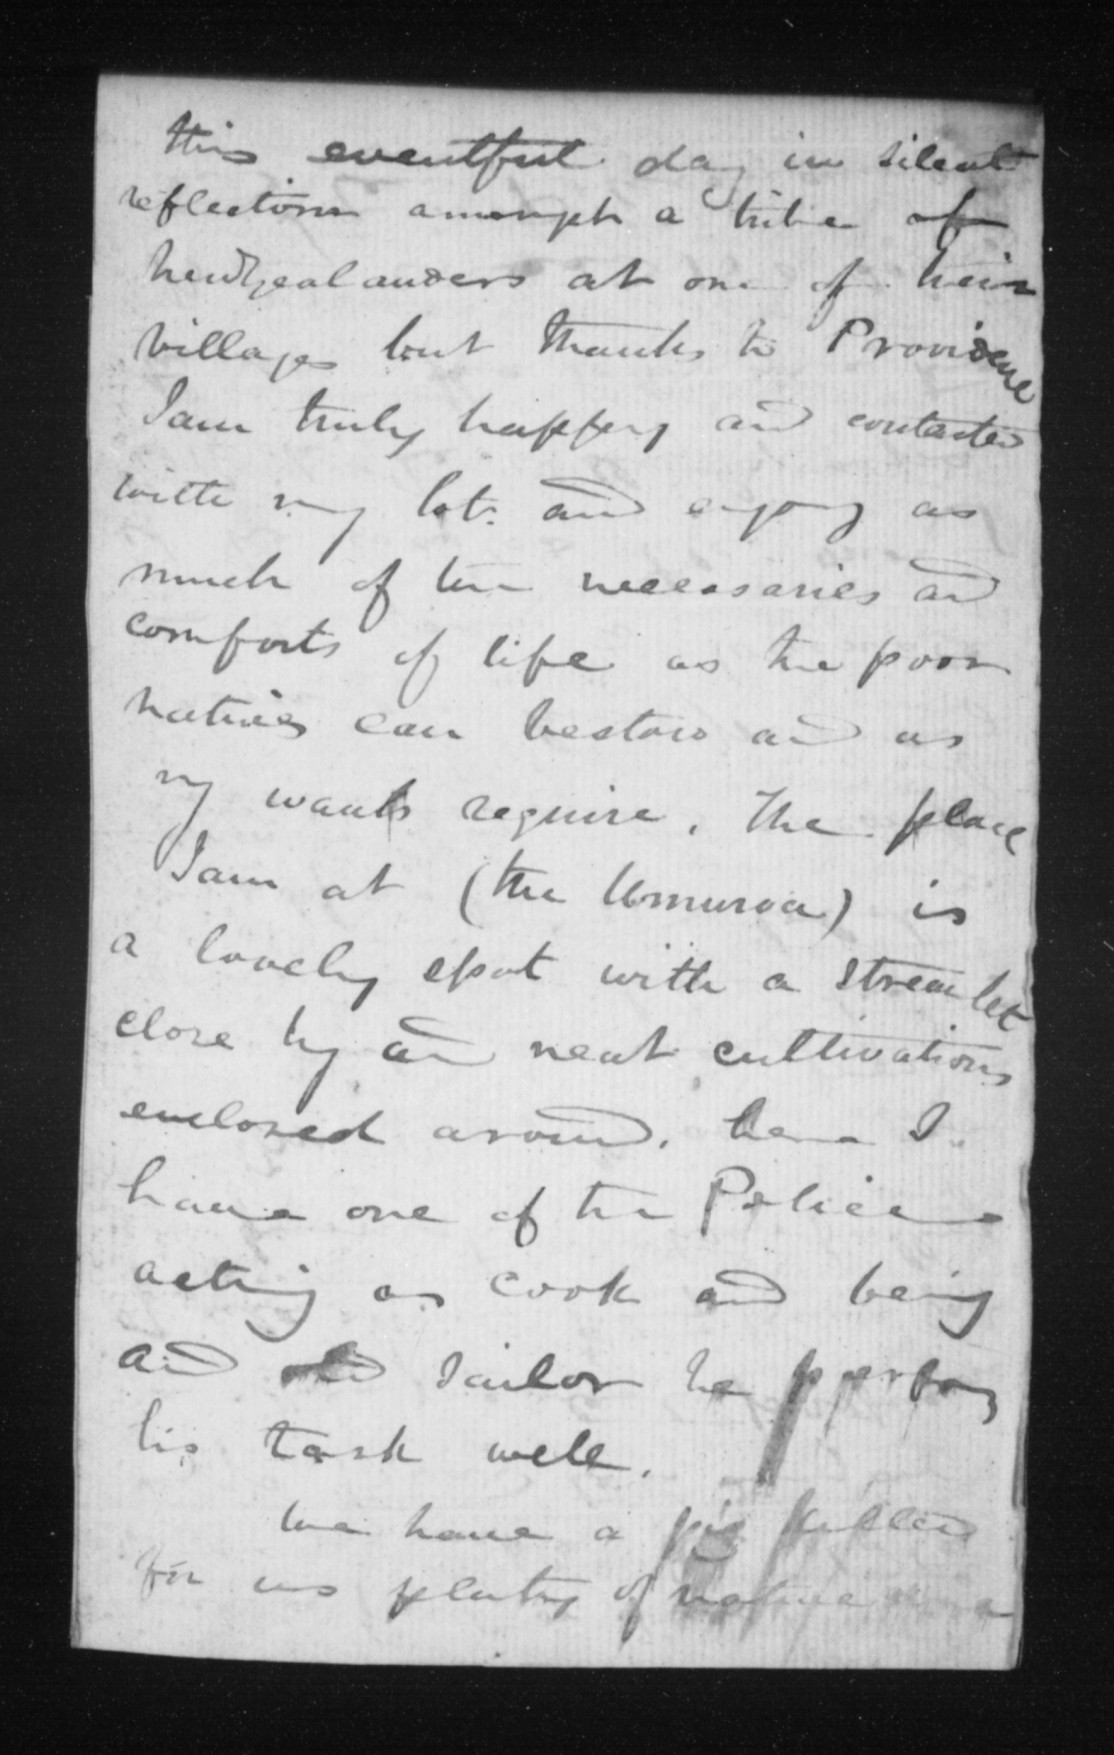 this eventful day in silent
reflection amongst a tribe of
Newzealanders at one of their
villages but thanks to Providence
I am truly happy and contented
with my lot. and enjoy as
much of the necessaries and
comforts of life as the poor
natives can bestow and as
my wants require. The place
I am at (the Umuroa) is
a lovely spot with a streamlet
close by and neat cultivations
enclosed around. here I
have one of the Police
acting as cook and being
and old Sailor he perform
his task well.
We have a pig killed
for us plenty of native